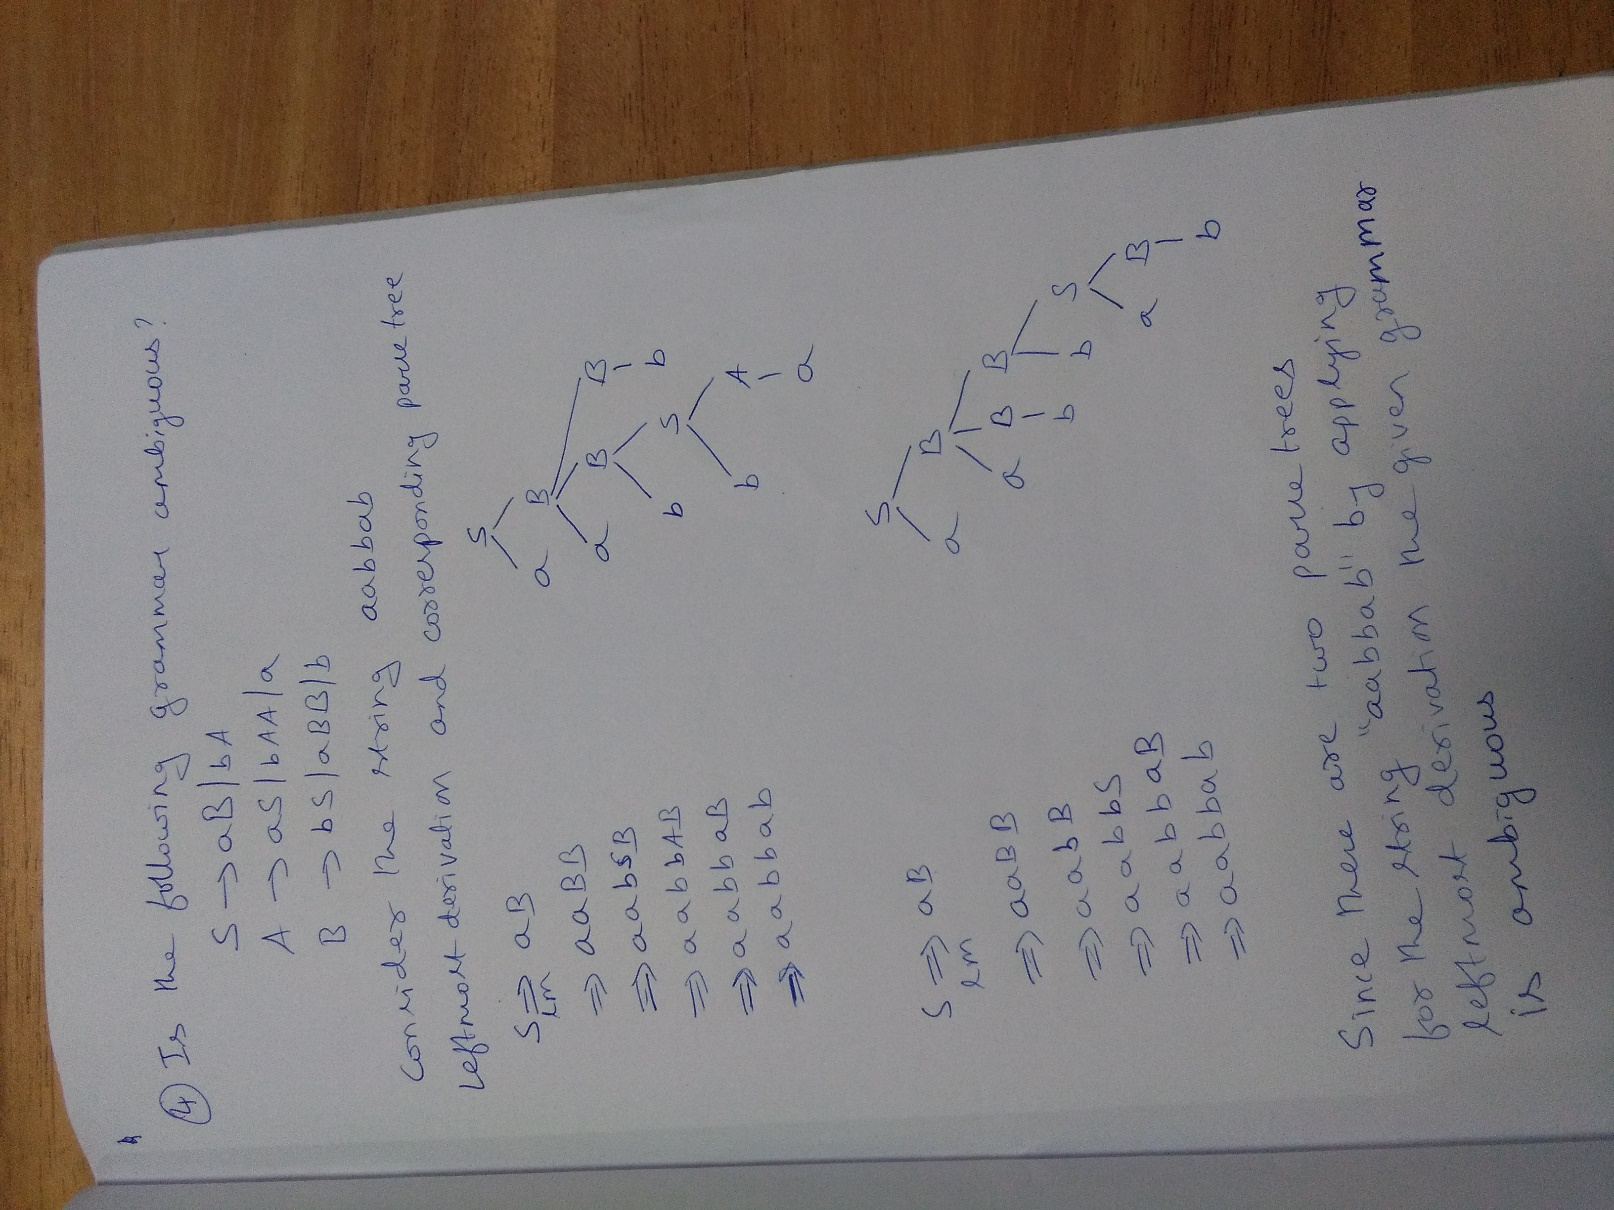 ④ Is the following grammar ambiguous?
S → aB|bA
A → aS|bAA|a
B → bS|aBB|b
Consider the string aabbab
Leftmost derivation and corresponding parse tree
S ⇒ aB
lm
⇒ aaBB
⇒ aabSB
⇒ aabbAB
⇒ aabbaB
⇒ aabbab
S
a B
a B B
b S b
b A
a
S ⇒ aB
lm
⇒ aaBB
⇒ aabB
⇒ aabbS
⇒ aabbaB
⇒ aabbab
S
a B
a B B
b b S
a B
b
Since there are two parse trees
for the string "aabbab" by applying
leftmost derivation the given grammar
is ambiguous